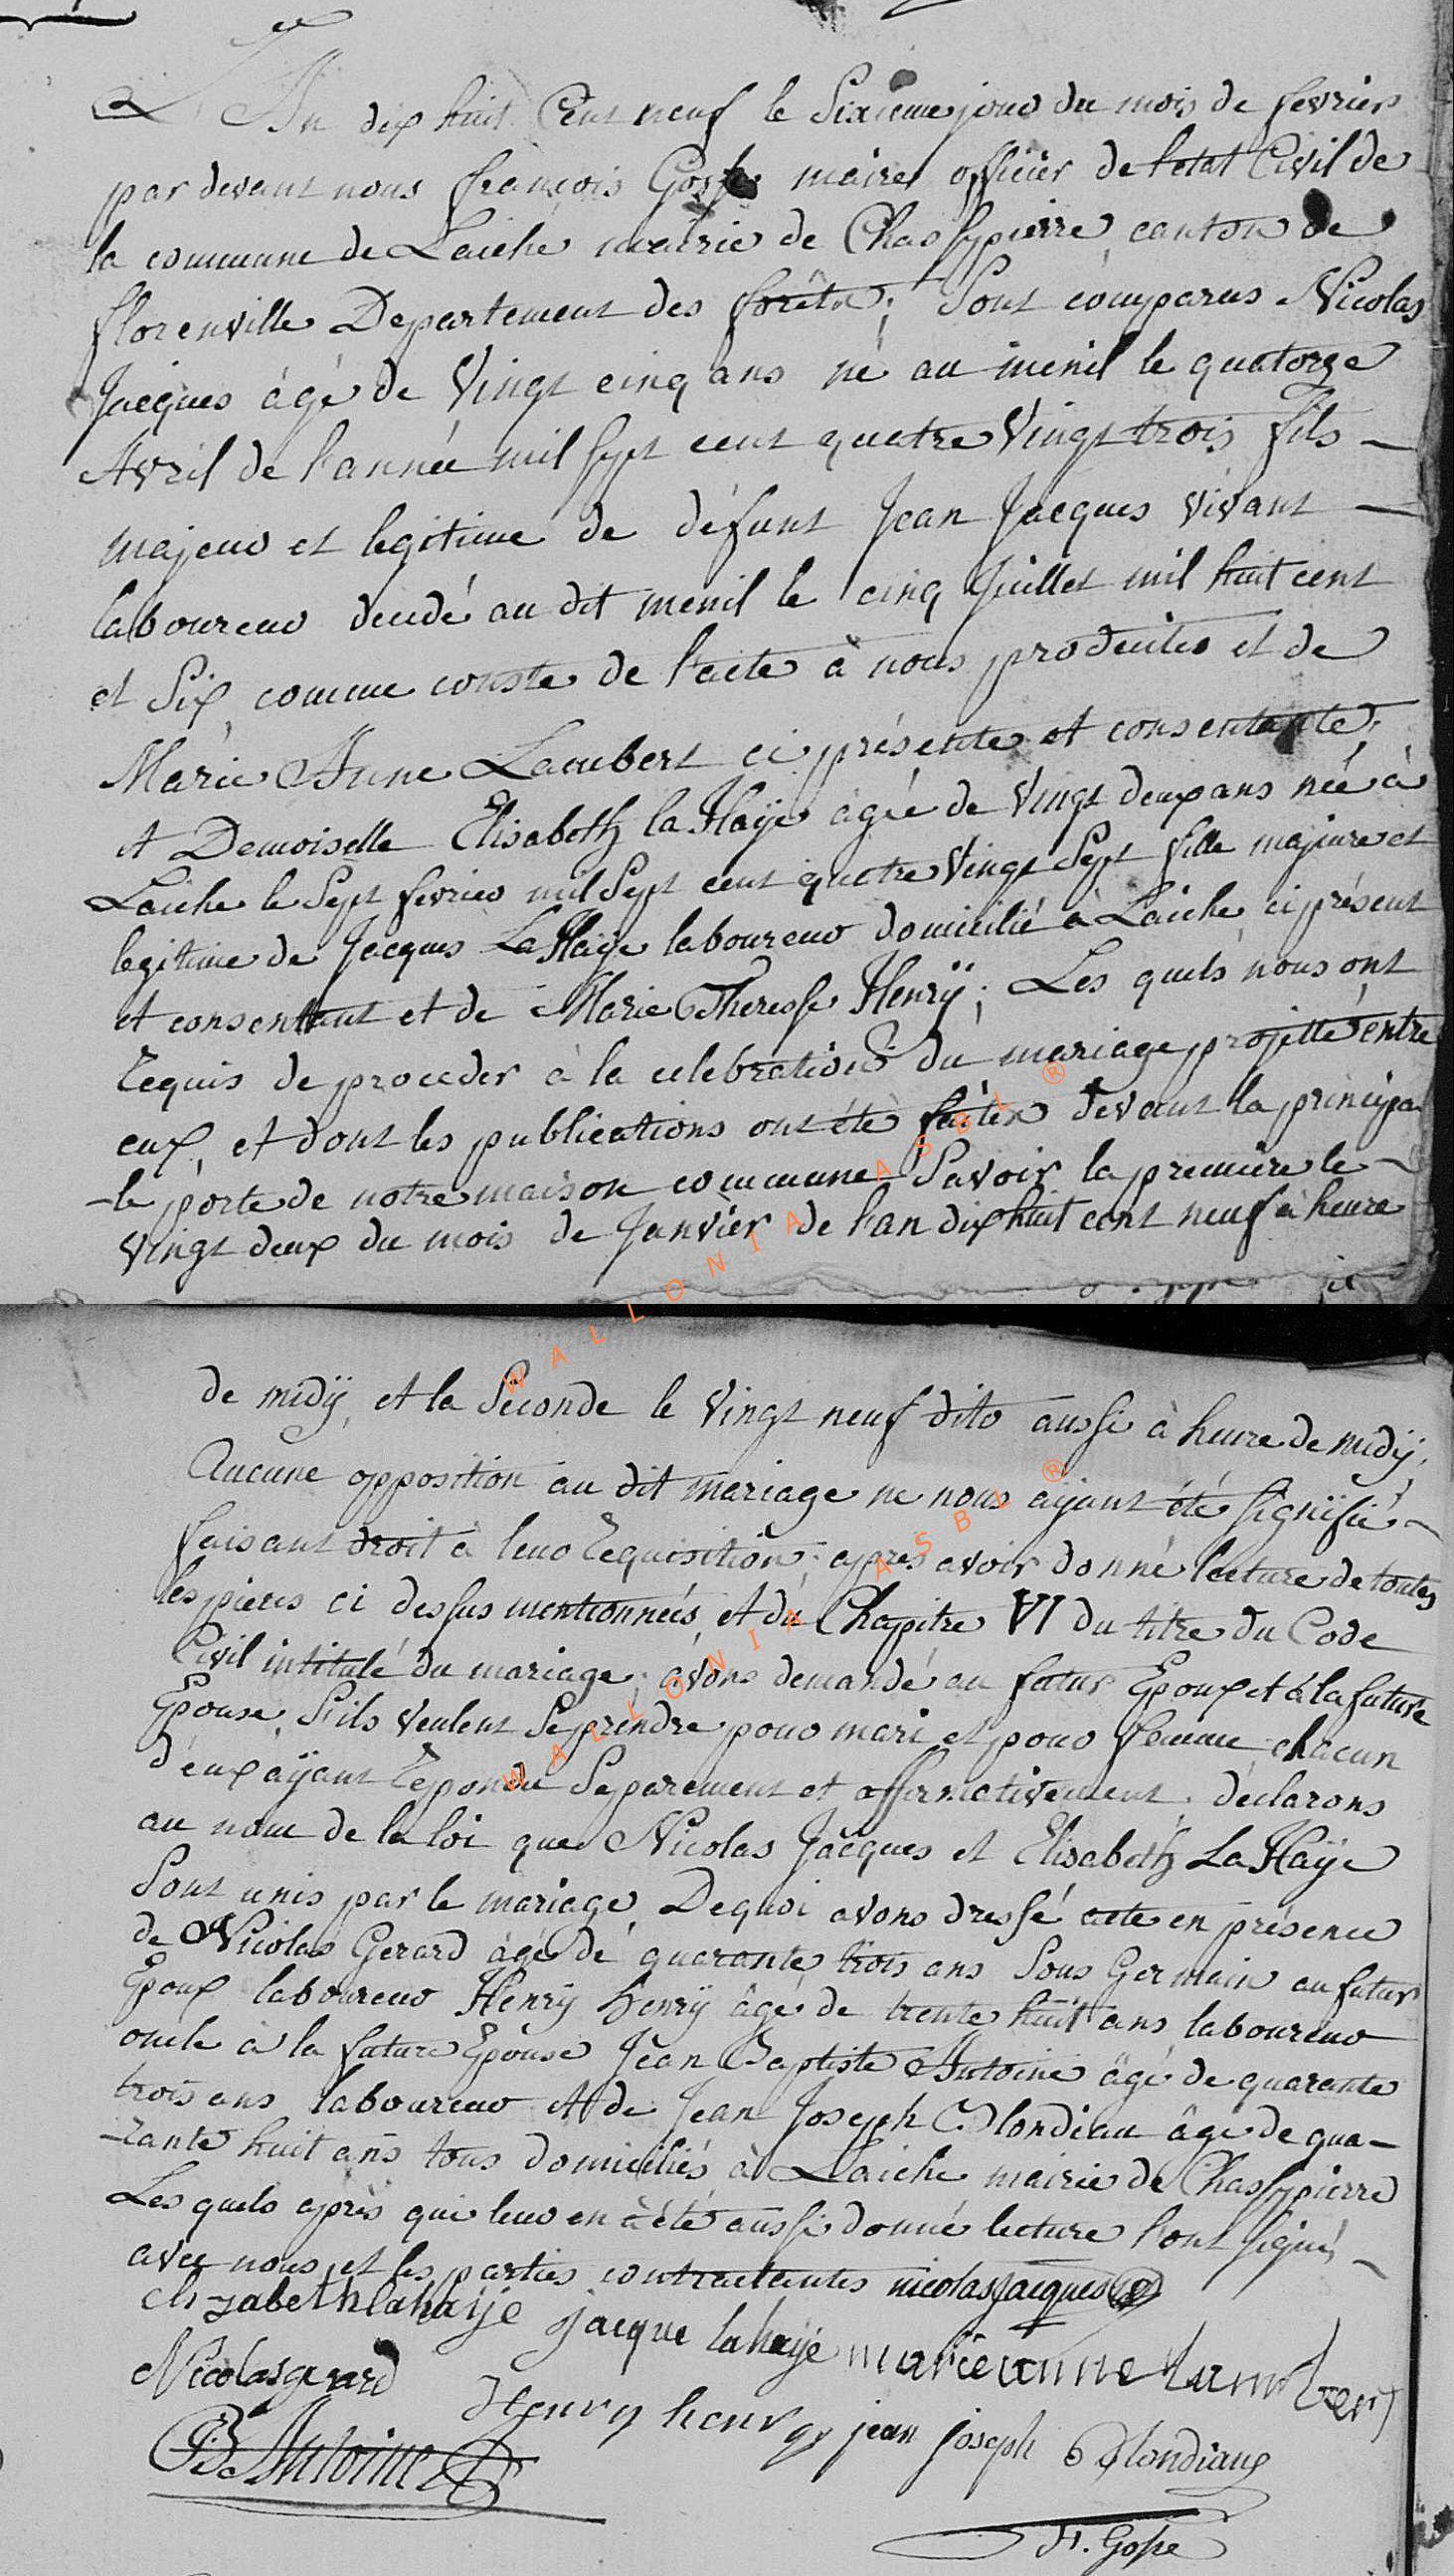 L'An dix huit Cent neuf le Sixieme jour du mois de fevrier
par devant nous françois Gosse maire officier de l'etat Civil de
la commune de Laiche mairie de Chassypierre canton de
florenville Departement des forêts; Sont comparus Nicolas
Jacques àgé de Vingt cinq ans né au menil le quatorze
Avril de l'année mil sept cent quatre Vingt trois fils —
majeur et legitime de défunt Jean Jacques vivant —
laboureur decedé au dit menil le cinq Juillet mil huit cent
et Six comme conste de l'acte à nous produites et de
Marie Anne Lambert ci présente et consentante;
et Demoiselle Elisabeth la Haÿe àgée de Vingt deux ans née à
Laiche le Sept fevrier mil Sept cent quatre Vingt Sept fille majeure et
legitime de Jacques La Haÿe laboureur domicilié à Laiche, ci présent
et consentant et de Marie Therese Henrÿ; Les quels nous ont
requis de proceder à la celebration du mariage projetté entre
eux, et dont les publications ont été faites devant la principa
-le porte de notre maison commune Savoir la premiere le -
vingt deux du mois de Janvier de l'an dix huit cent neuf à heure
de midÿ, et la Seconde le Vingt neuf dito aussi à heure de midÿ;
Aucune opposition au dit mariage ne nous aÿant été signifié -
faisant droit à leur requisition; apres avoir donné lecture de toutes
les pieces ci dessus mentionnées, et du Chapitre VI du titre du Code
Civil intitulé du mariage; avons demandé au futur Epoux et à la future
Epouse, S'ils veulent Se prendre pour mari et pour femme; chacun
d'eux aÿant repondu Separement et affirmativement; déclarons
au nom de la loi que Nicolas Jacques et Elisabeth La Haÿe
Sont unis par le mariage. De quoi avons dressé acte en présence
de Nicolas Gerard àgé de quarante trois ans Sous Germain au futur
Epoux laboureur Henrÿ henrÿ âgé de trente huit ans laboureur
oncle à la future Epouse Jean Baptiste Antoine âgé de quarante
trois ans laboureur et de Jean Joseph Blondiau âgé de qua-
-rante huit ans tous domiciliés à Laiche mairie de Chassypierre
Les quels après qui leur en à été aussi donné lecture l'ont signés -
avec nous et les parties contractantes nicolas jacques
elizabeth lahaÿe jacque lahaÿe marie anne lambert
Nicolas gerard Henry henry jean joseph Blondiaux
JB Antoine
F. Gosse
WALLONIA ASBL ®
WALLONIA ASBL ®